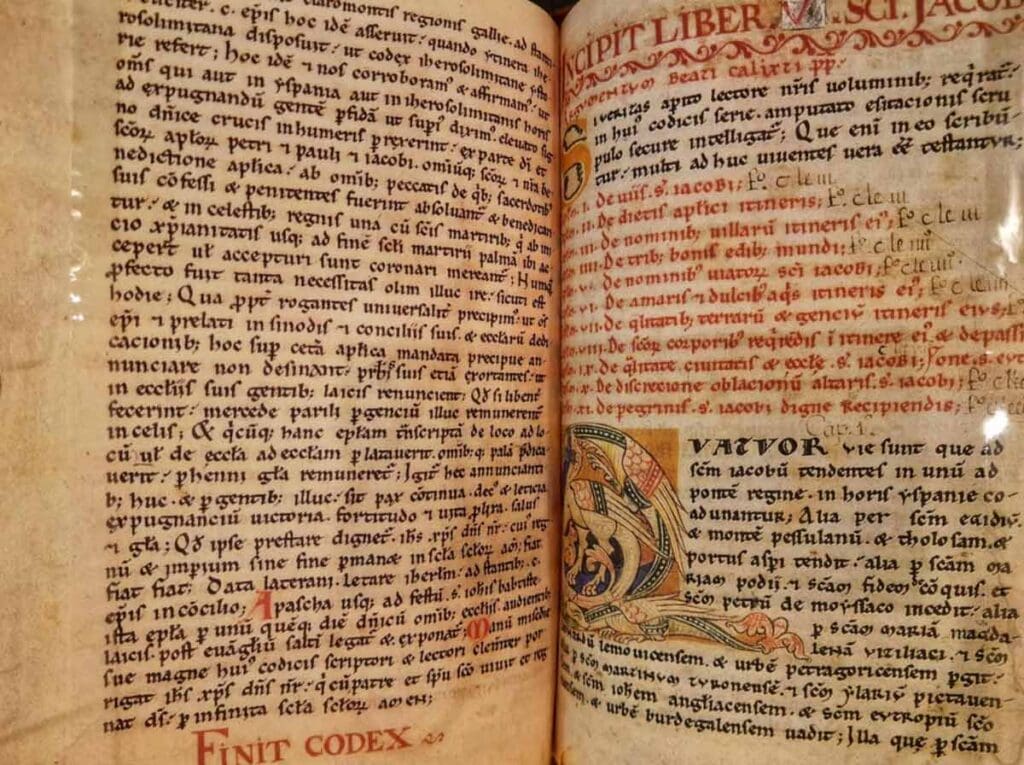 epis hoc idē asseruit · quando ytinera ihe
rosolimitana disposuit · ut codex iherosolimitane
rie refert ; hoc idē ⁊ nos corroboram' & affirmam' · ut
om̄s qui aut in yspania aut in iherosolimitanis horis
ad expugnandū gentē p̄fidā ut sup' dixim' elevato sig
no dn̄ice crucis in humeris p̄rexerint · ex parte dī et
sc̄orꝝ aplorꝝ petri & pauli & iacobi · omiūq; sc̄orꝝ ⁊ nr̄a be
nedictione aplica · ab omib; peccatis de qb; sacerdotib'
suis cōfessi & penitentes fuerint absoluant' & benedican
tur · & in celestib; regnis una cū sc̄is martirib; q' ab ini
cio xp̄ianitatis usq; ad finē scl̄i martirii palmā ibi ac
ceper̄t ul' accepturi sunt coronari mereant' ; Nunq̄
profecto fuit tanta necessitas olim illuc ire · sicuti est
hodie ; Qua p̄pt' rogantes universalit' precipim' · ut om̄s
ep̄i ⁊ prelati in sinodis ⁊ conciliis suis & ecclarū dedi
cacionib; hoc sup' cetā aplica mandata precipue an
nunciare non desinant · p̄rb'os suos etiā exortantes · ut
in ecclīis suis gentib; laicis renuncient ; Qd' si libent'
fecerint · mercede parili p̄genciū illuc remunerent'
in celis ; & q̄cūq; hanc ep̄lam trn̄scriptā de loco ad lo
cū ul' de eccl̄a ad ecclam p̄latauerit · omib; q; palā p̄dica
uerit · p̄henni gl̄a remuneret' ; Igit' hec annunciantī
b; huc · & p̄gentib; illuc · sit pax cōtinua · dec' & leticia
expugnanciū victoria · fortitudo & uita p̄lixa · salus
⁊ gl̄a ; Qd' ipse prestare dignet' · ihs̄ · xp̄s dn̄s nr̄ · cui' reg
nū & imperium sine fine p̄manꝫ in scl̄a scl̄orꝝ am̄ ; fiat
fiat fiat ; Data laterani · letare ihrl̄m · ad stantib; · c ·
ep̄is in cōcilio ; A pascha usq; ad festū · s̄ · iohīs baptiste
ista ep̄la p̄ unū quēq; diē dn̄icū omib; ecclīis audientib;
laicis · post evāgl̄iū salti legat' & exponat' ; Manū miscdie
sue magne hui' codicis scriptori & lectori clem̄ter por
rigat ihs̄ xp̄s dn̄s nr̄ · q' cū patre et spū scō uiuit et reg
nat ds̄ · p̄ infinita scl̄a scl̄orꝝ amen ;
FINIT CODEX
INCIPIT LIBER · V · SCI · JACOBI
ARGUMENTVM BEATI CALIXTI PP̄ ·
Si ueritas apito lectore nr̄is voluminib; reqrat' ·
in hui' codicis serie · amputato esitacionis scru
pulo secure intelligat' ; Que enī in eo scribū
tur · multi ad huc uiuentes uera eē testantur ;
I · De uiis · s̄ · iacobi ; fo. c le iii
II · De dietis apl̄ici itineris ; fo. c le iii
III · De nominib; uillarū itineris ei' ; fo. c le iii
IIII · De trib; bonis edib; mundi ; fo. c le iiii
V · De nominib' uiatorꝝ sc̄i iacobi ; fo. c le iiii
VI · De amaris & dulcib' aq̄s itineris ei' ; fo. c le iiii
VII · De qlitatib; terrarū & genciū itineris eius ; fo
VIII · De sc̄orꝝ corporib' reqrēdis ī itinere ei' & de passi
one · s̄ · eut
IX · De qlitate ciuitatis & eccl̄e · s̄ · iacobi ;
X · De discrecione oblacionū altaris · s̄ · iacobi ; fo. c le
XI · De pegrinis · s̄ · iacobi digne recipiendis ; fo. c le
Cap. 1.
QUATUOR uie sunt que ad
sc̄m iacobū tendentes in unū ad
pontē regine · in horis yspanie co
adunantur ; Alia per sc̄m egidiū ·
& montē pessulanū · & tholosam · &
portus asp̄i tendit · alia p̄ sc̄am ma
riam podii · ⁊ sc̄am fidem cōquis · et
sc̄m petrū de moyssaco incedit · alia
p̄ sc̄am mariā magda
lenā uiziliaci · ⁊ sc̄m
leonardū lemouicensem · & urbē petragoricensem pgit ·
alia p̄ sc̄m martinum turonensē · ⁊ sc̄m ylariū pictauen
sem · & sc̄m iohem angliacensem · & sc̄m eutropiū sc̄o
nensē · & urbē burdegalensem uadit ; Illa que p̄ sc̄am